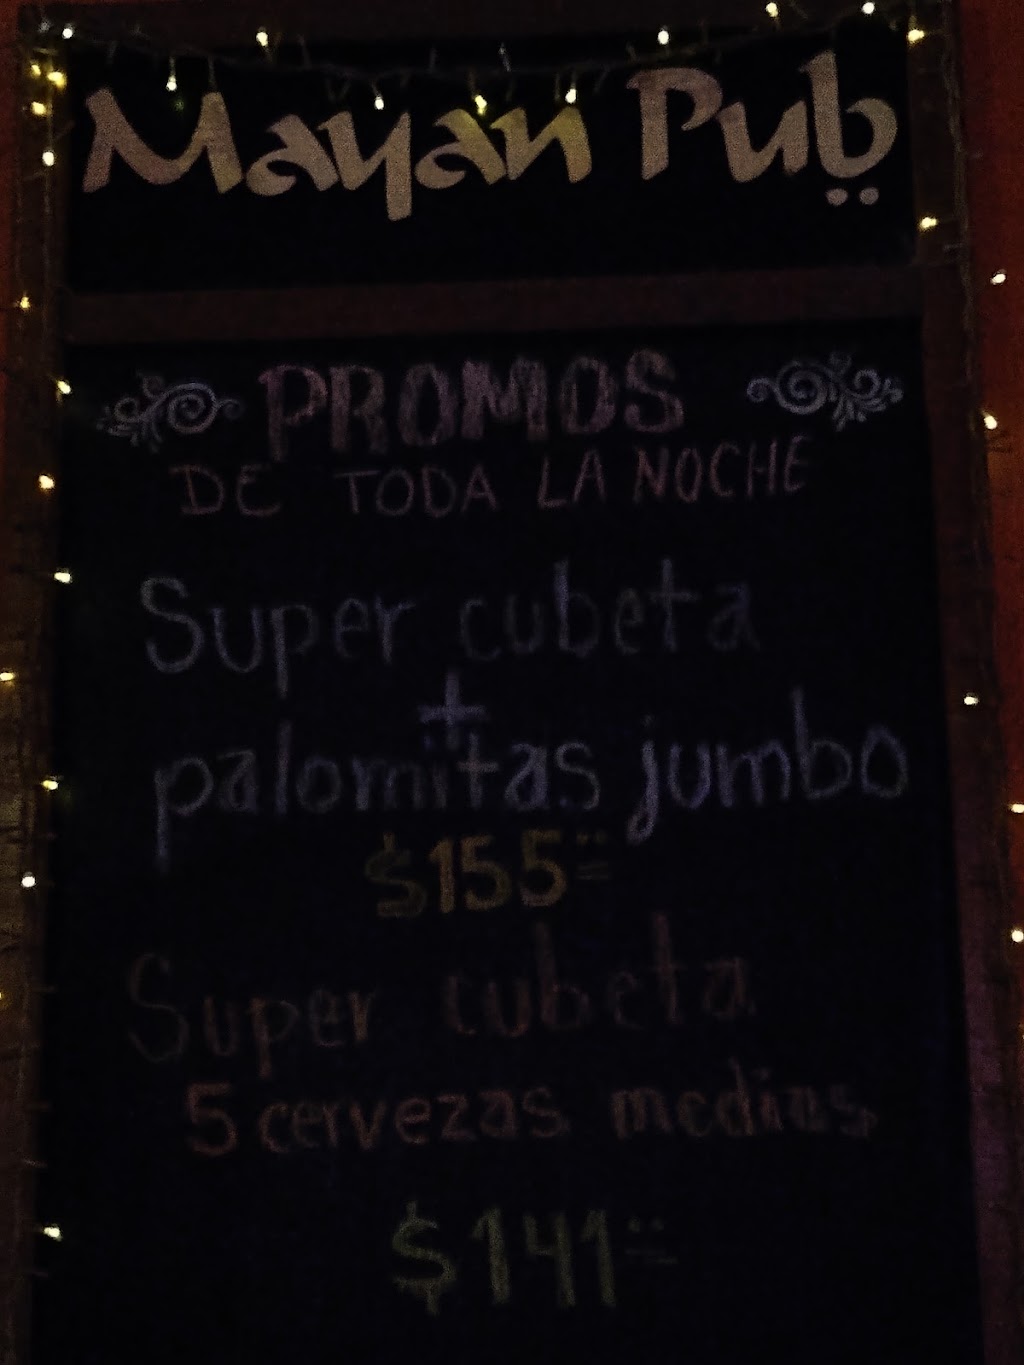 Mayan Pub
PROMOS
DE TODA LA NOCHE
Super cubeta
+
palomitas jumbo
$155.00
Super cubeta
5 cervezas medias
$141.00